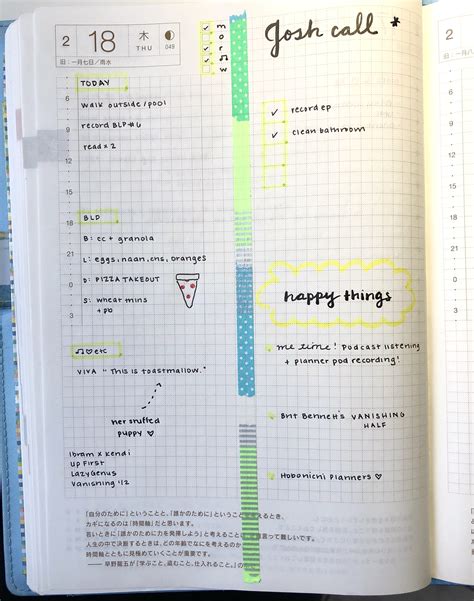 2
18
木
THU
049
旧：一月七日／雨水
m
o
r
w
Josh call *
TODAY
walk outside/pool
record BLP#6
read x 2
✓ record ep
✓ clean bathroom
6
9
12
15
18
21
0
3
BLD
B: cc + granola
L: eggs, naan, chs, oranges
D: PIZZA TAKEOUT
S: wheat mins
+ pb
happy things
6
9
12
15
18
♫♡etc
VIVA "This is toastmallow."
her stuffed
puppy ♡
Ibram x Kendi
Up First
LazyGenius
Vanishing '12
me time! Podcast listening
+ planner pod recording!
Brit Bennett's VANISHING
HALF
Hobonichi planners ♡
「自分のために」ということと、「誰かのために」ということを考えるとき、
カギになるのは「時間軸」だと思います。
人生の中で決断するときは、どの年齢でなにを考えるのか
時間軸とともに見極めていくことが重要です。
――早野龍五が『学ぶこと、盗むこと、仕入れること。』の